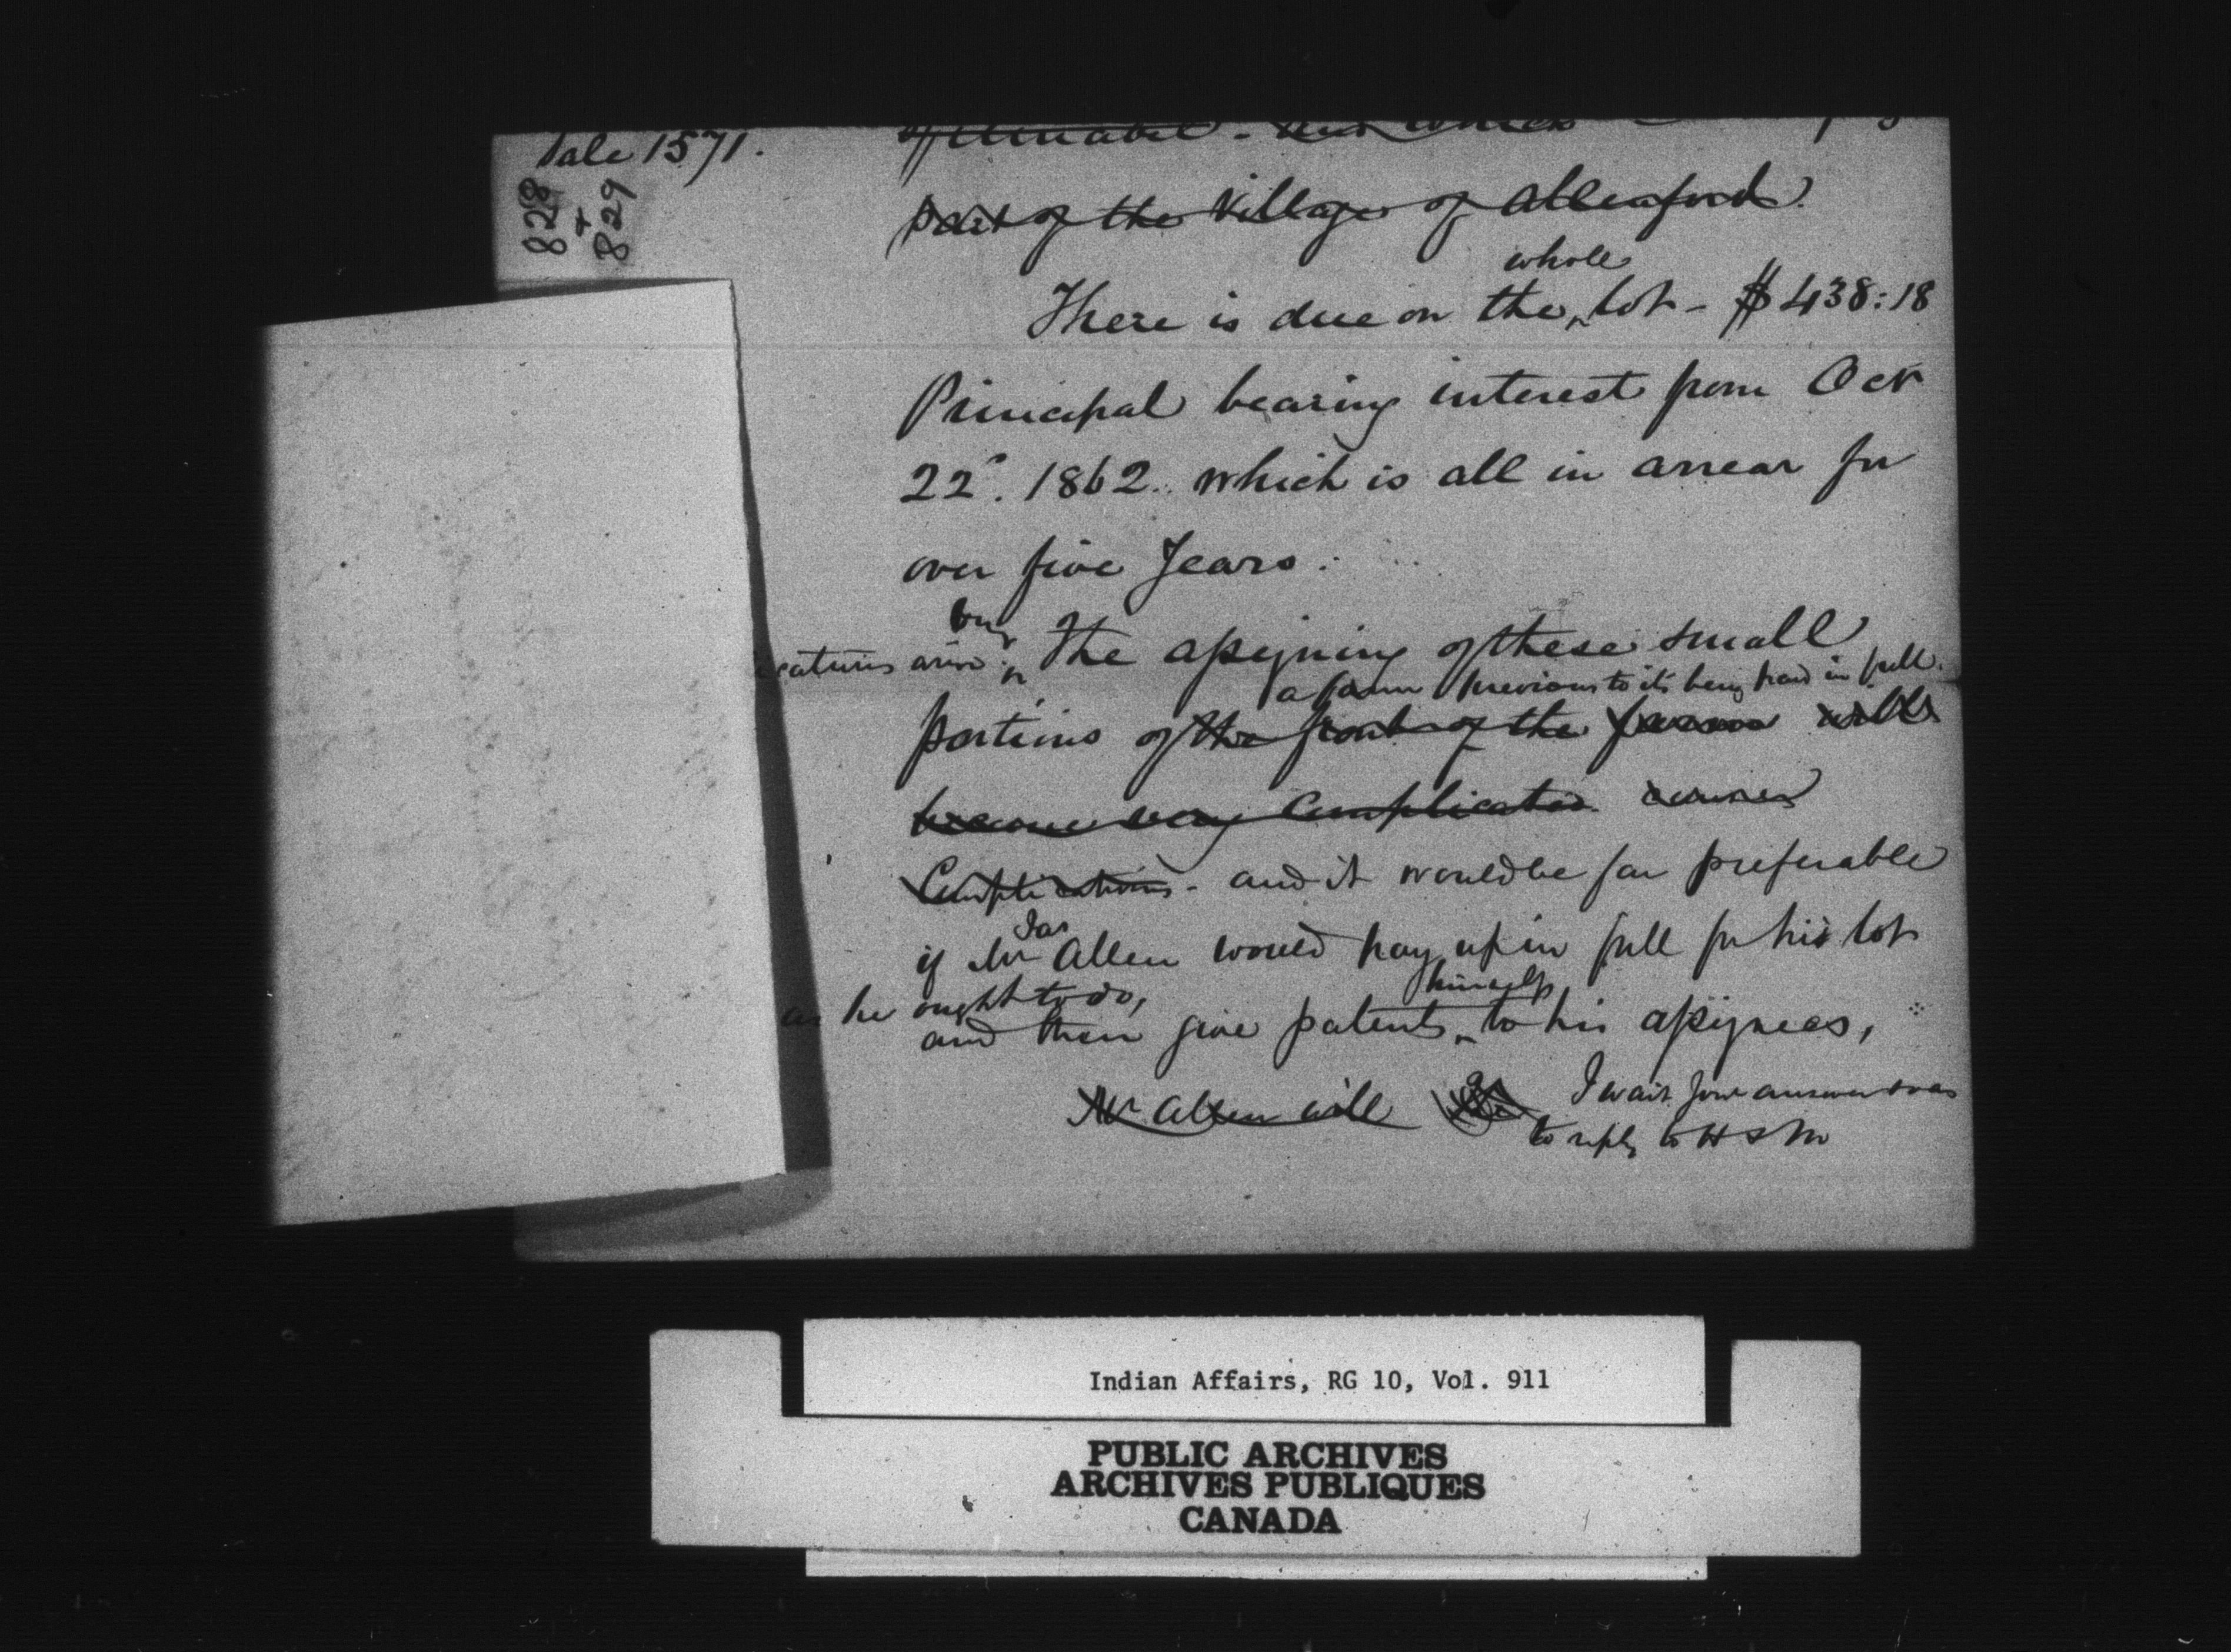 Sale 1571.
828
+
829
of Amabel - and which
part of the Village of Allenford.
whole
There is due on the lot - $438:18
Principal bearing interest from Oct
22d. 1862. which is all in arrear for
over five Years.
The assigning of these small
a farm previous to its being paid in full.
portions of the front of the farm will
become very Complicated causes
Complications - and it would be far preferable
Jas
if Mr Allen would pay up in full for his lot
as he ought to do,
himself
and then give patents to his assignees,
Mr Allen will
I wait your answer
to reply to H
Indian Affairs, RG 10, Vol. 911
PUBLIC ARCHIVES
ARCHIVES PUBLIQUES
CANADA